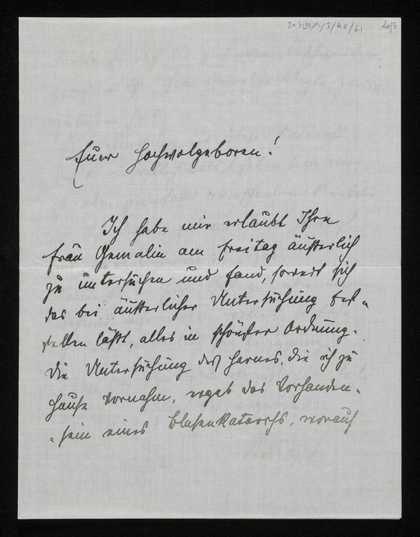 Euer Hochwolgeboren!
Ich habe mir erlaubt Ihre
Frau Gemalin am Freitag äußerlich
zu untersuchen und fand, soweit sich
das bei äußerlicher Untersuchung fest-
stellen läßt, alles in schönster Ordnung.
Die Untersuchung des Harnes, die ich zu
Hause vornahm, ergab das Vorhanden-
-sein eines Blasenkatarrhs, worauf